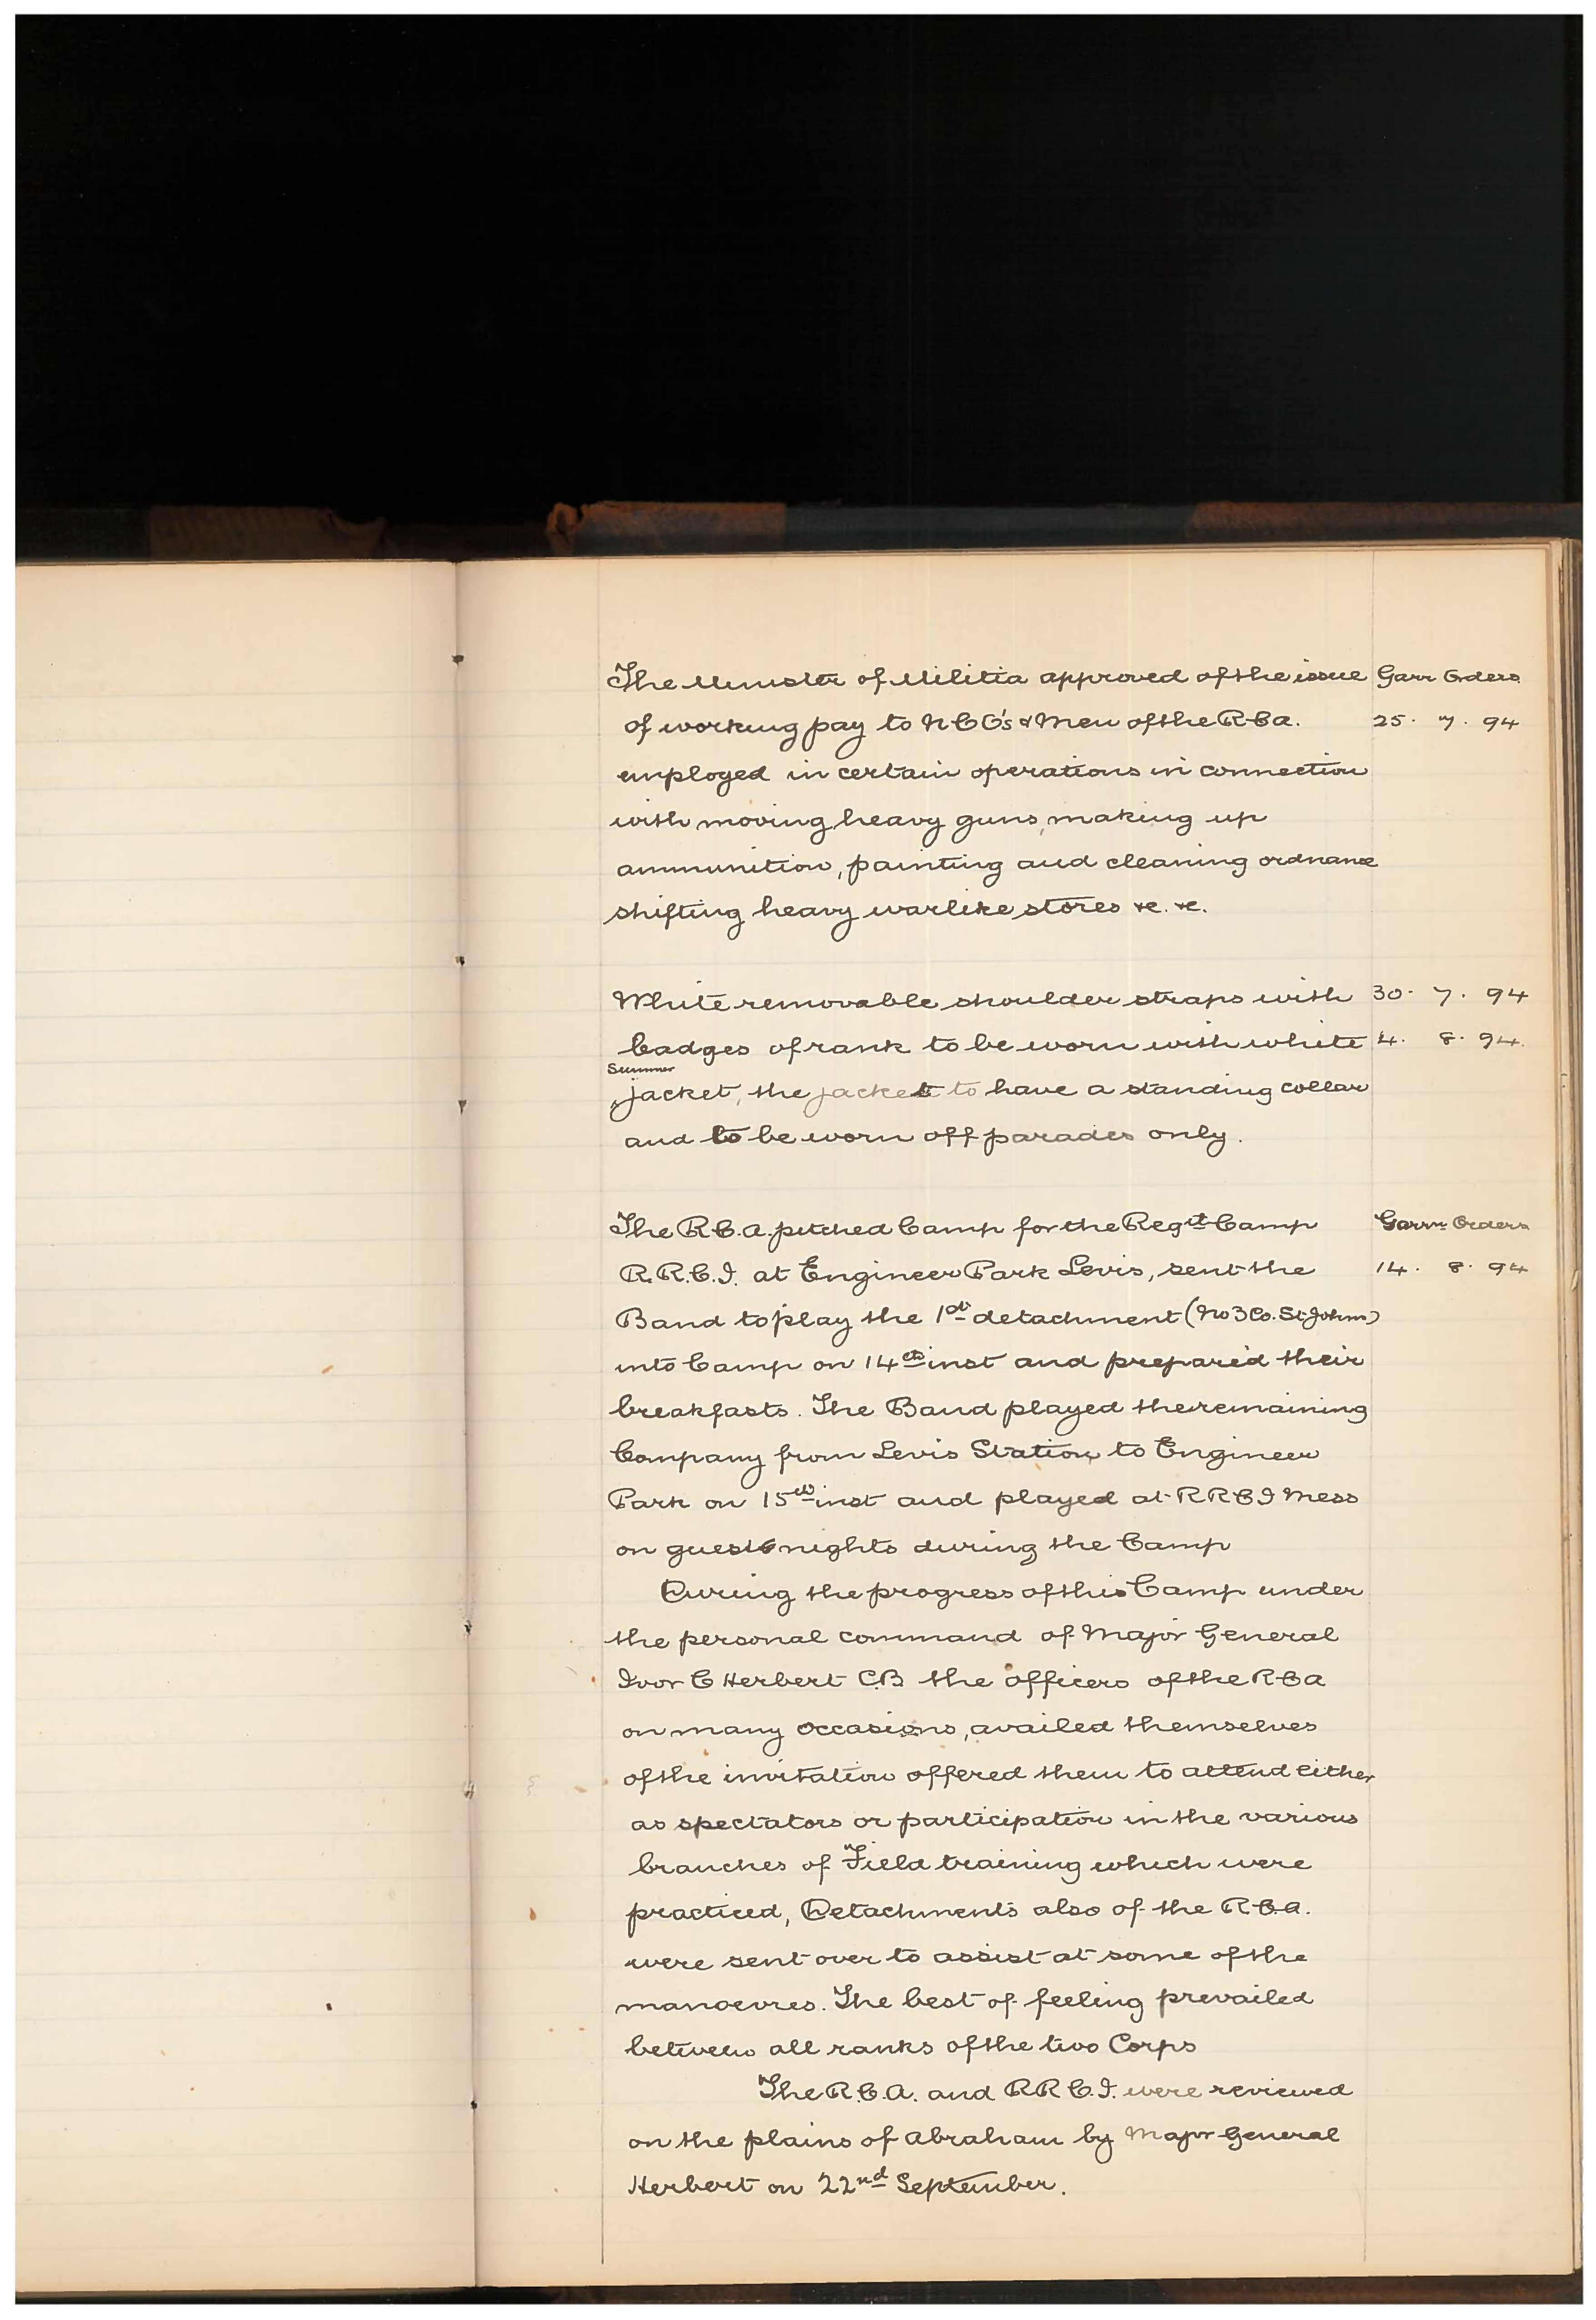 The Minister of Militia approved of the issue Garr Orders
of working pay to N C O's & Men of the R C A. 25. 7. 94
employed in certain operations in connection
with moving heavy guns, making up
ammunition, painting and cleaning ordnance
shifting heavy warlike stores &c. &c.
White removable shoulder straps with 30. 7. 94
badges of rank to be worn with white 4. 8. 94.
Summer
jacket, the jacket to have a standing collar
and to be worn off parades only.
The R.C.A. pitched Camp for the Regtl Camp Garrn Orders
R.R.C.I. at Engineer Park Levis, sent the 14. 8. 94
Band to play the 1st detachment (No 3 Co. St Johns)
into Camp on 14th inst and prepared their
breakfasts. The Band played the remaining
Company from Levis Station to Engineer
Park on 15th inst and played at R R C I Mess
on guest nights during the Camp
During the progress of this Camp under
the personal command of Major General
Ivor C Herbert C.B the officers of the R C A
on many occasions, availed themselves
of the invitation offered them to attend either
as spectators or participation in the various
branches of Field training which were
practiced, Detachments also of the R.C.A.
were sent over to assist at some of the
manoevres. The best of feeling prevailed
between all ranks of the two Corps
The R.C.A. and R R C.I. were reviewed
on the plains of Abraham by Major General
Herbert on 22nd September.